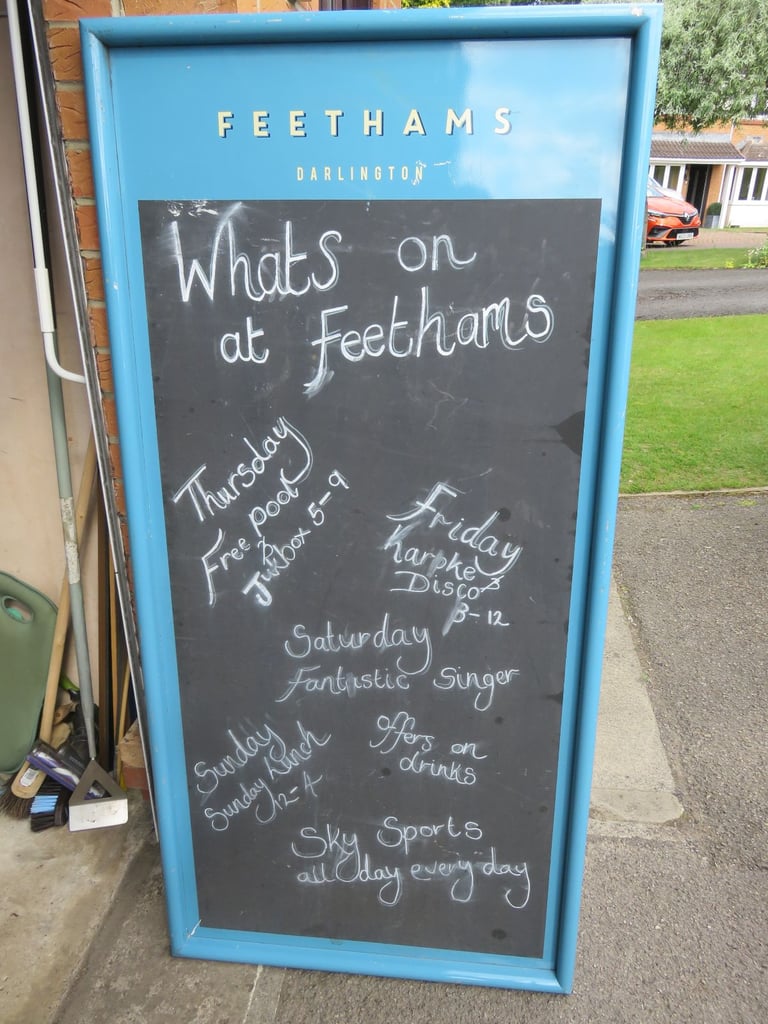 FEETHAMS
DARLINGTON
Whats on
at Feethams
Thursday
Free pool
Jukbox 5-9
Friday
Disco
8-12
Saturday
Fantastic Singer
Sunday
Sunday Lunch
12-4
offers on
drinks
Sky Sports
all day every day